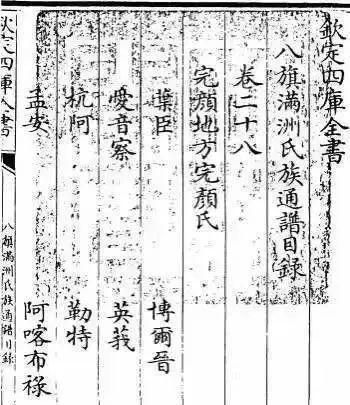 欽定四庫全書
八旗滿洲氏族通譜目錄
卷二十八
完顏地方完顏氏
葉臣 博爾晉
愛音察 英莪
杭阿 勒特
孟安 阿喀布祿
欽定四庫全書
八旗滿洲氏族通譜目錄